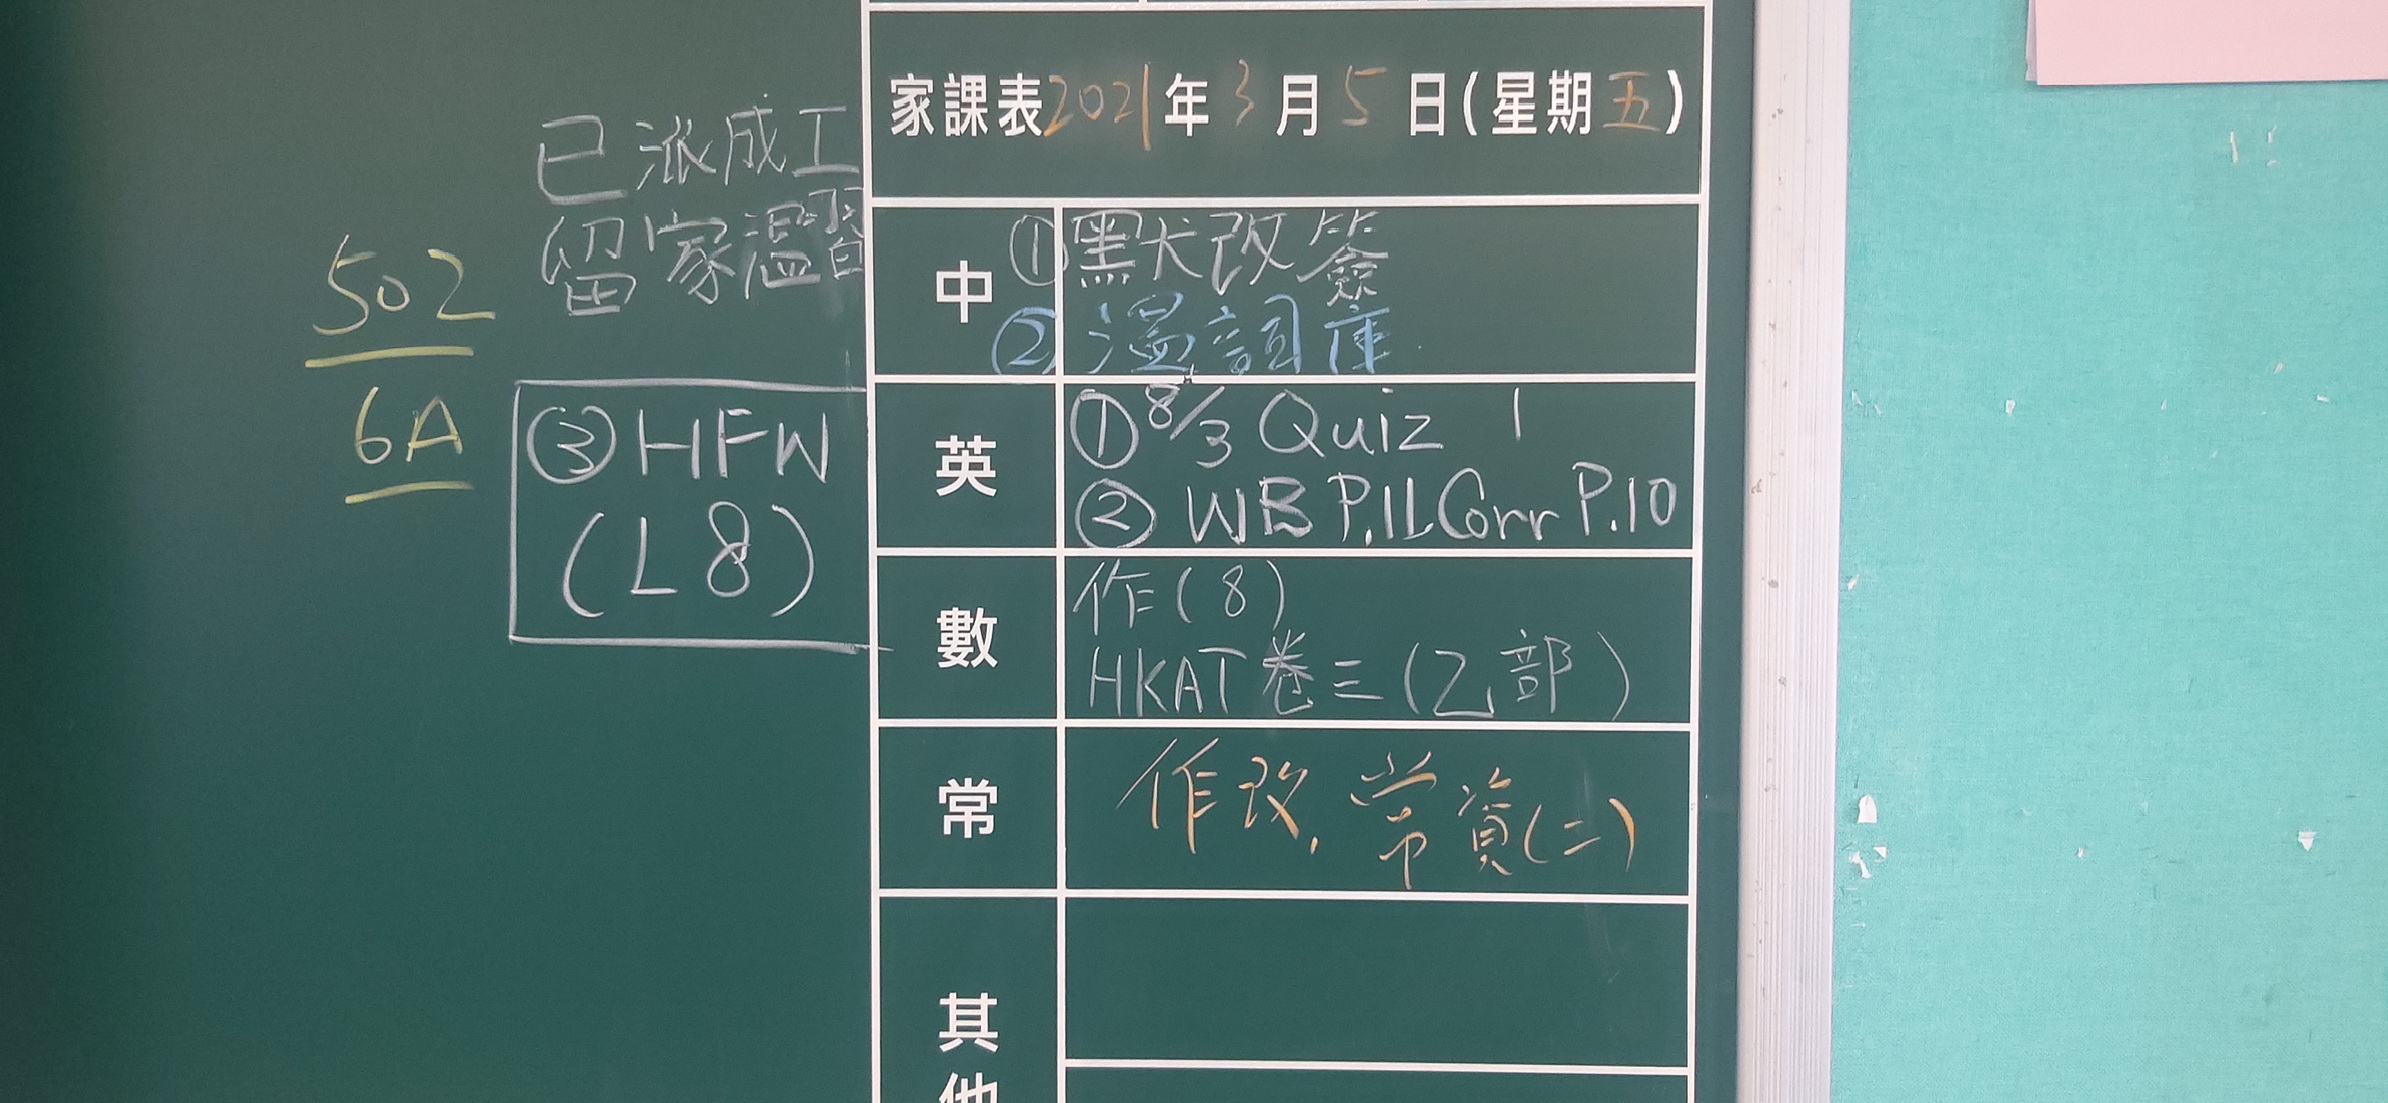 家課表2021年3月5日(星期五)
已派成工
留家溫習
502
6A
中
①默犬改簽
②溫詞庫
英
①8/3 Quiz 1
②WB P.11 Corr P.10
③HFW
(L8)
數
作(8)
HKAT卷三(乙部)
常
作改,常資(二)
其
他